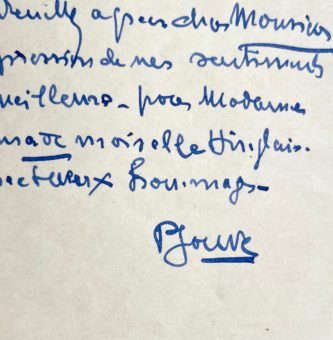 Veuillez agréer chers Monsieur
pression de mes sentiments
meilleurs - pour Madame
Mademoiselle
pectueux hommages -
PJouve